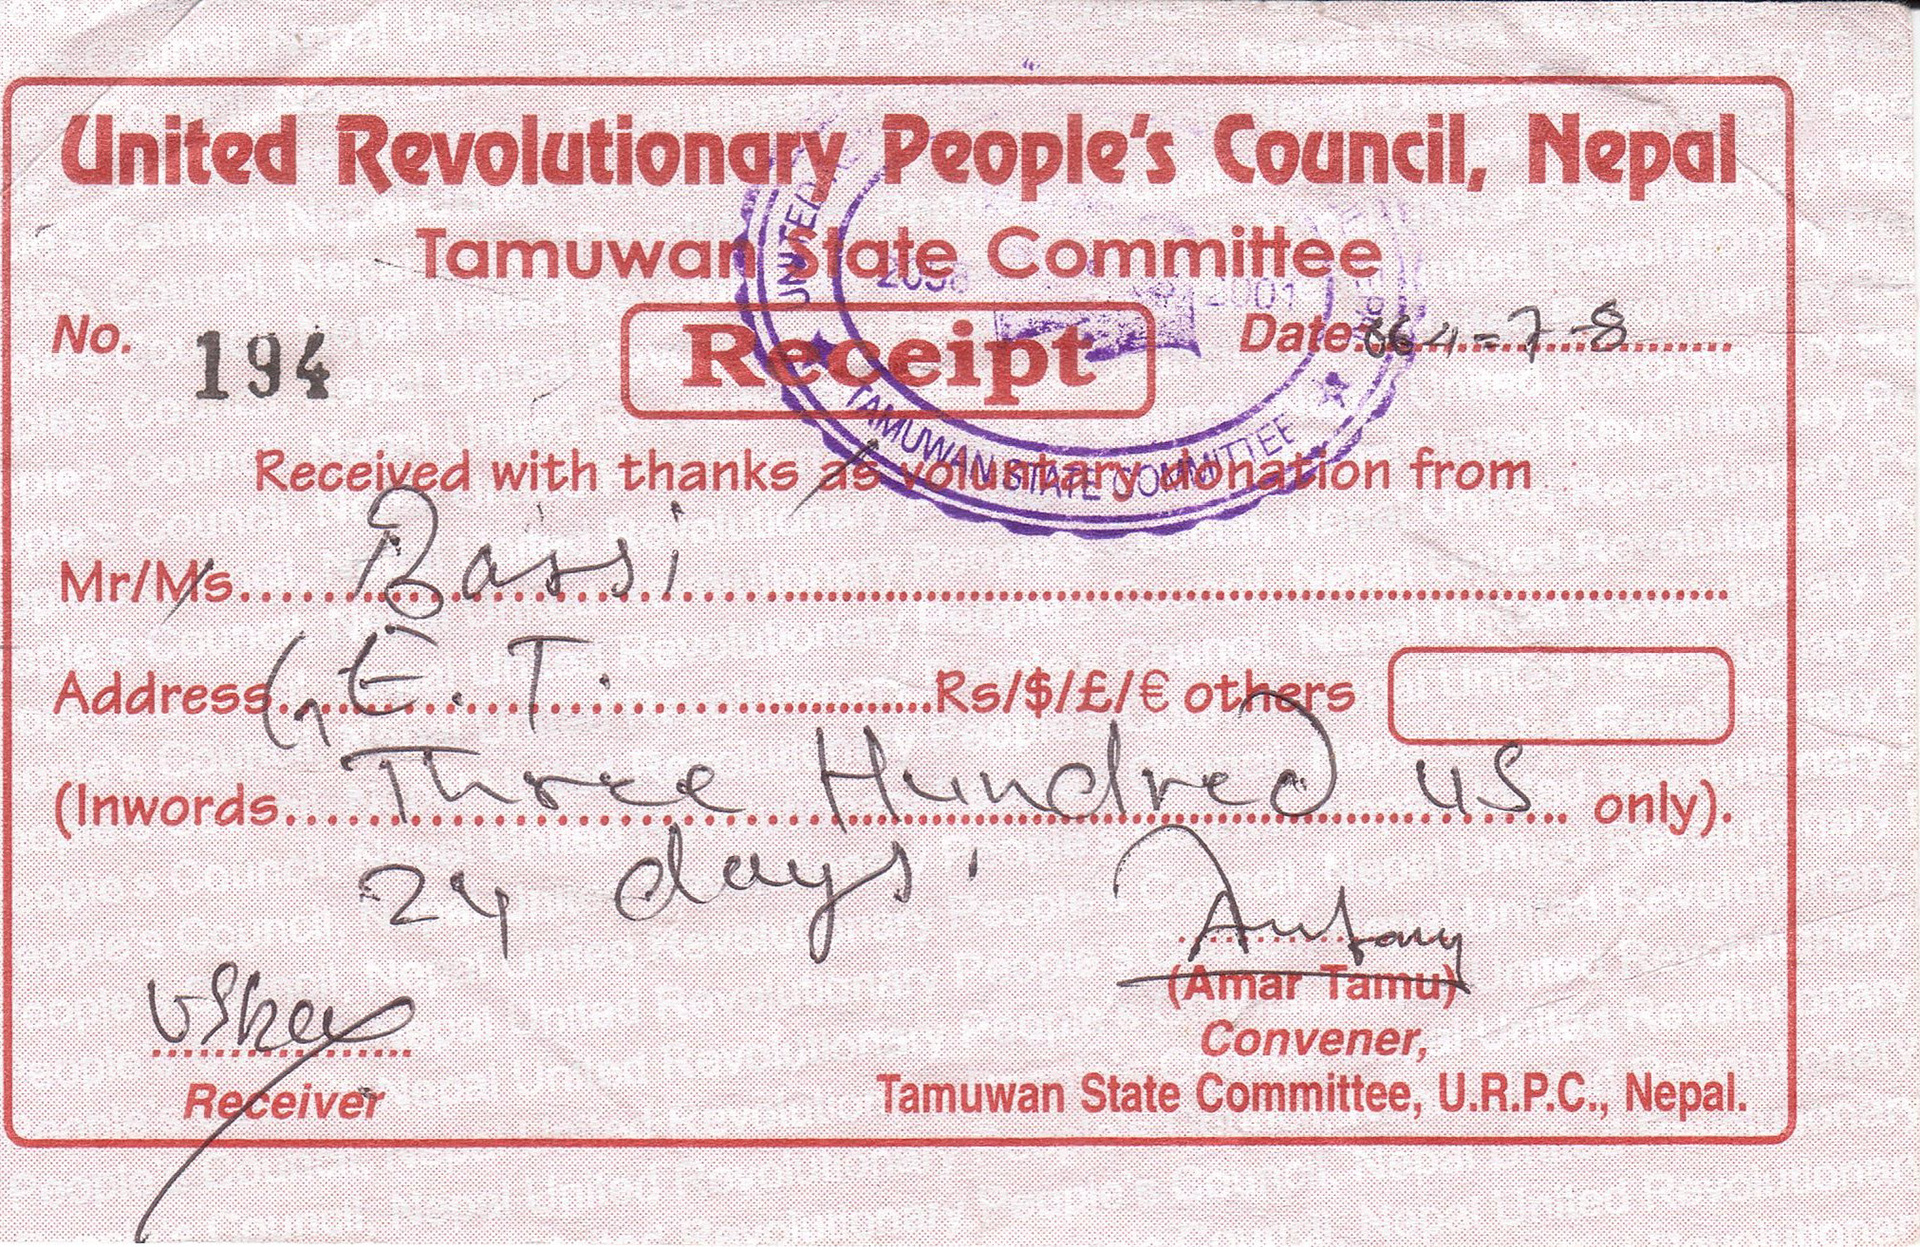 United Revolutionary People's Council, Nepal
Tamuwan State Committee
No. 194
Receipt
Date 064-7-8
UNITED
2001
TAMUWAN STATE COMMITTEE
Received with thanks as voluntary donation from
Mr/Ms. Bassi
Address G.E.T. Rs/$/£/€ others
(Inwords Three Hundred US only).
24 days.
(Amar Tamu)
Convener,
Receiver
Tamuwan State Committee, U.R.P.C., Nepal.